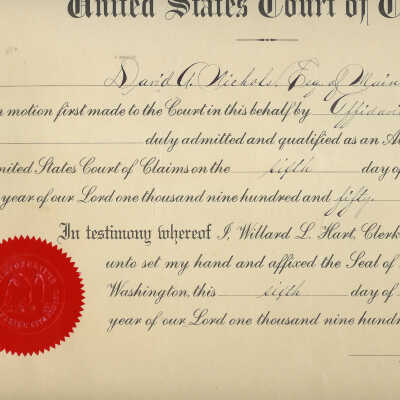 United States Court of C
David A. Nichols, Esq of Main
n motion first made to the Court in this behalf by Affidavi
duly admitted and qualified as an A
nited States Court of Claims on the fifth day of
year of our Lord one thousand nine hundred and fifty
In testimony whereof I, Willard L. Hart, Clerk
unto set my hand and affixed the Seal of
Washington, this fifth day of
year of our Lord one thousand nine hundr